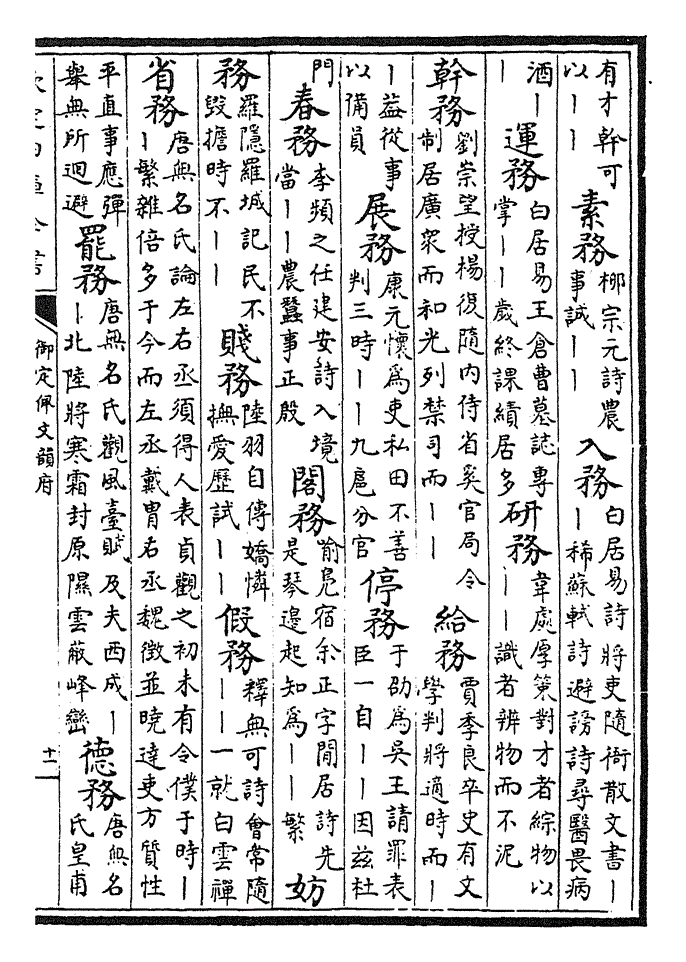 有才幹可以｜｜ 素務 柳宗元詩農事誠｜｜ 入務 白居易詩將吏隨衙散文書｜｜稀蘇軾詩避謗詩尋醫畏病
酒｜｜ 運務 白居易王倉曹墓誌專掌｜｜歲終課績居多 研務 韋處厚策對才者綜物以｜｜識者辨物而不泥
幹務 劉崇望授楊復隨內侍省奚官局令制居廣衆而和光列禁司而｜｜ 給務 賈季良卒史有文學判將適時而｜
｜益從事以備員 展務 康元懷爲吏私田不善判三時｜｜九扈分官 停務 于邵爲吳王請罪表臣一自｜｜因茲杜
門 春務 李頻之任建安詩入境當｜｜農蠶事正殷 閣務 喻凫宿余正字閒居詩先是琴邊起知爲｜｜繁 妨
務 羅隱羅城記民不毀擔時不｜｜ 賤務 陸羽自傳嬌憐撫愛歷試｜｜ 假務 釋無可詩會常隨｜｜一就白雲禪
省務 唐無名氏論左右丞須得人表貞觀之初未有令僕于時｜｜繁雜倍多于今而左丞戴胄右丞魏徵並曉達吏方質性
平直事應彈舉無所迴避 罷務 唐無名氏觀風臺賦及夫西成｜｜北陸將寒霜封原隰雲蔽峰巒 德務 唐無名氏皇甫
御定佩文韻府
十一